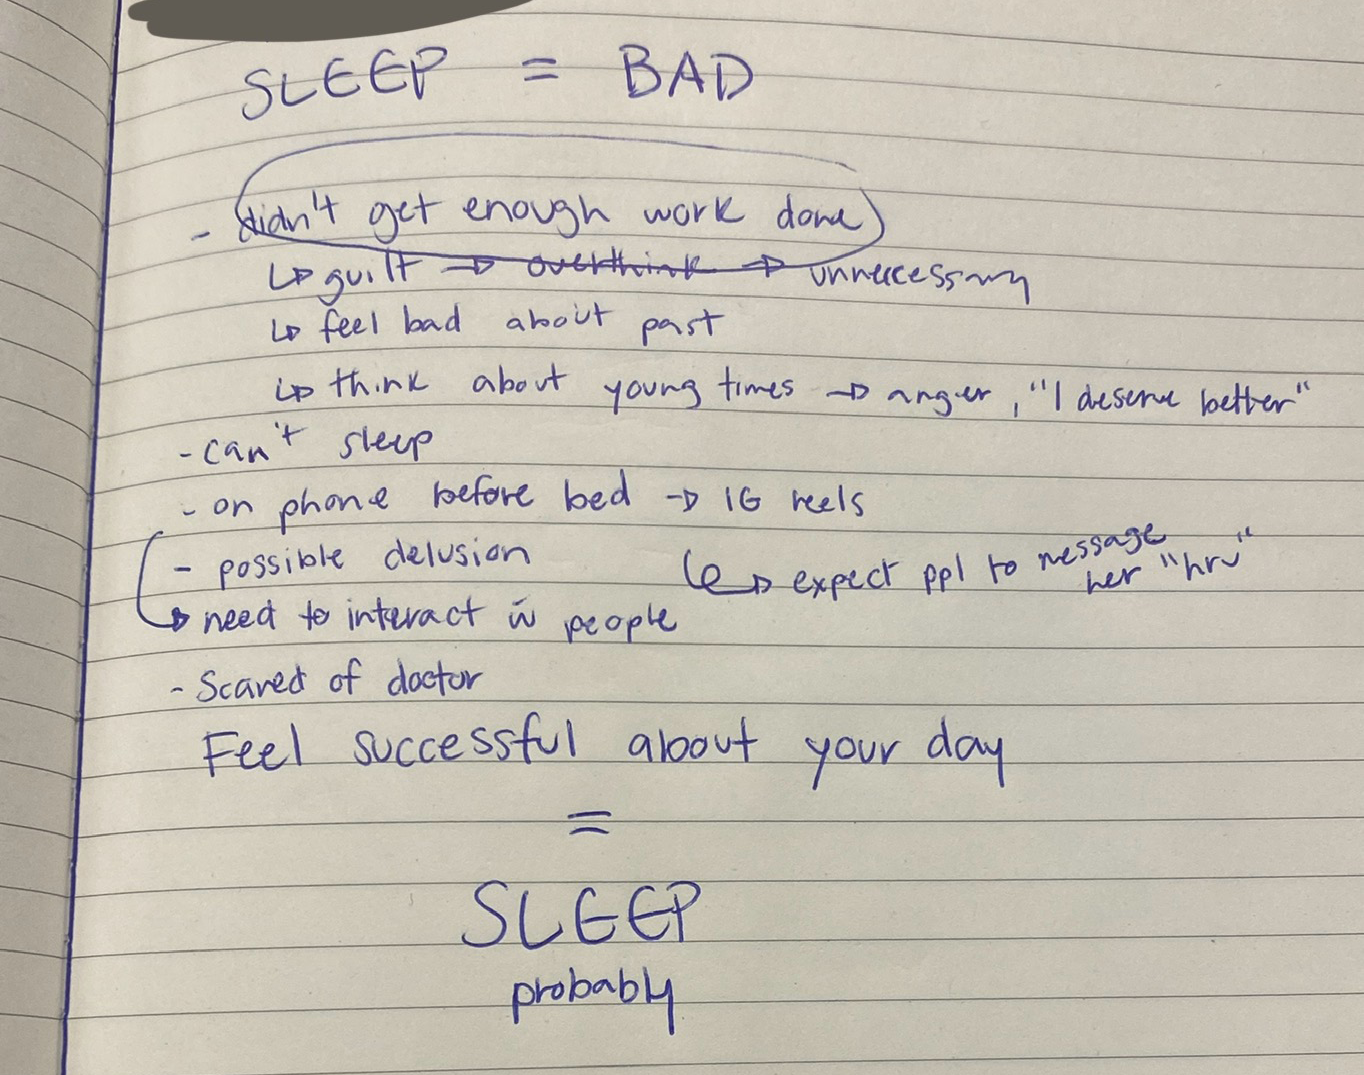 SLEEP = BAD
- didn't get enough work done
↳ guilt → overthink → unnecessary
↳ feel bad about past
↳ think about young times → anger, "I deserve better"
- can't sleep
- on phone before bed → IG reels
- possible delusion
↳ expect ppl to message her "hru"
→ need to interact w̄ people
- Scared of doctor
Feel successful about your day
=
SLEEP
probably